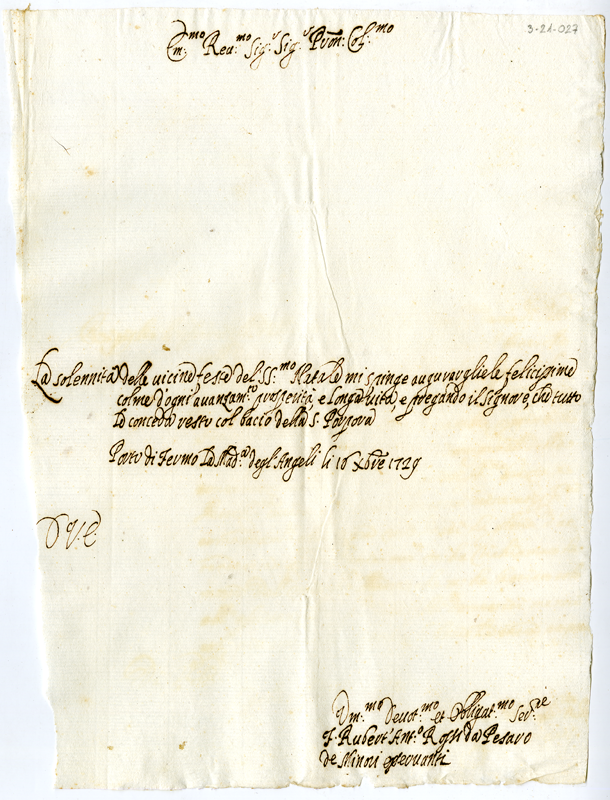 3-21-027
Em:mo Reu:mo Sig:r Sig:r Pron: Col:mo
La solennità delle uicine feste del SS:mo Natale mi spinge augurargliele felicissime
colme d'ogni auanzam:to prosperità, e longa uita, e pregando il Signore, che tutto
Le conceda resto col bacio della S: Porpora
Porto di Fermo La Mad:a degl'Angeli li 16 Xbre 1729
D V: E:
Um:mo Deuot:mo et Obligat:mo Ser:re
F. Rubert' Ant:o Rossi da Pesaro
de Minori osseruanti